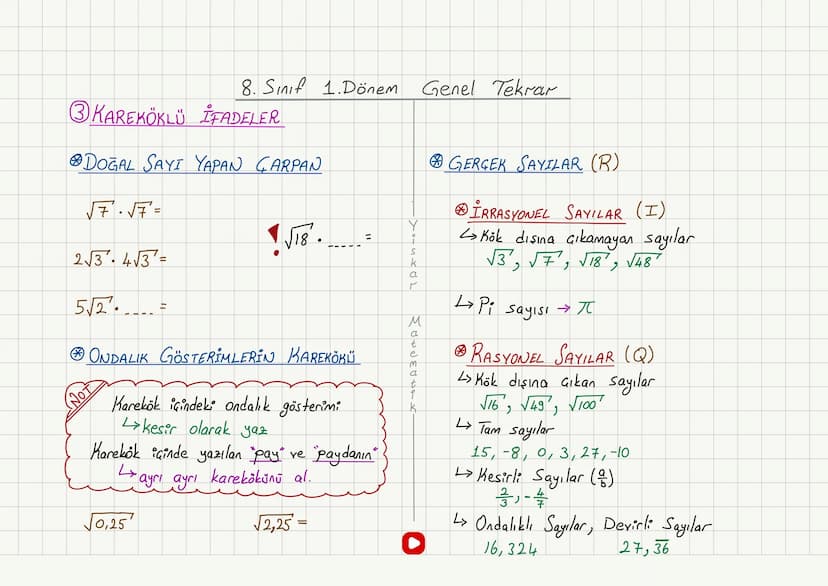 8. Sınıf 1.Dönem Genel Tekrar
③ KAREKÖKLÜ İFADELER
⊛ DOĞAL SAYI YAPAN ÇARPAN
√7 . √7 =
! √18 . _____ =
2√3 . 4√3 =
5√2 . ____ =
⊛ ONDALIK GÖSTERİMLERİN KAREKÖKÜ
NOT
Karekök içindeki ondalık gösterimi
↳ kesir olarak yaz
Karekök içinde yazılan "pay" ve "paydanın"
↳ ayrı ayrı karekökünü al.
√0,25
√2,25 =
Yıskar Matematik
⊛ GERÇEK SAYILAR (R)
⊛ İRRASYONEL SAYILAR (I)
↳ Kök dışına çıkamayan sayılar
√3, √7, √18, √48
↳ Pi sayısı → π
⊛ RASYONEL SAYILAR (Q)
↳ Kök dışına çıkan sayılar
√16, √49, √100
↳ Tam sayılar
15, -8, 0, 3, 27, -10
↳ Kesirli Sayılar (a/b)
2/3, -4/7
↳ Ondalıklı Sayılar, Devirli Sayılar
16,324 27,3̅6̅